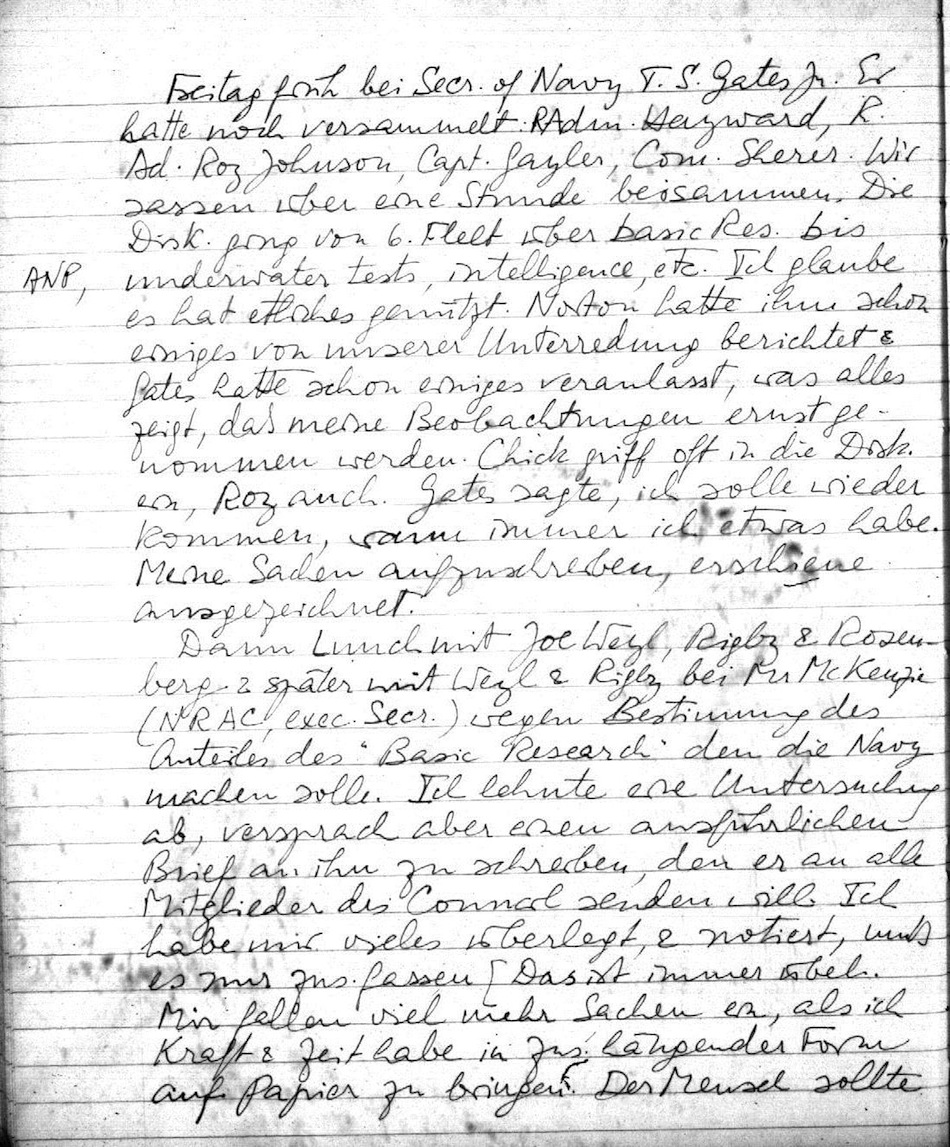 Freitag früh bei Secr. of Navy T. S. Gates Jr. Er
hatte noch versammelt RAdm. Hayward, R.
Ad. Roy Johnson, Capt. Gayler, Com. Sherer. Wir
sassen über eine Stunde beisammen. Die
Disk. ging von 6. Fleet über basic Res. bis
ANP, underwater tests, intelligence, etc. Ich glaube
es hat etliches genützt. Norton hatte ihm schon
einiges von unserer Unterredung berichtet &
Gates hatte schon einiges veranlasst, was alles
zeigt, daß meine Beobachtungen ernst ge-
nommen werden. Chick griff oft in die Disk.
ein, Roy auch. Gates sagte, ich solle wieder
kommen, wann immer ich etwas habe.
Meine Sachen aufzuschreiben, erschiene
ausgezeichnet.
Dann Lunch mit Joe Weyl, Rigby & Rosen-
berg & später mit Weyl & Rigby bei Mr McKenzie
(NRAC, exec. Secr.) wegen Bestimmung des
Anteiles des "Basic Research" den die Navy
machen solle. Ich lehnte eine Untersuchung
ab, versprach aber einen ausführlichen
Brief an ihn zu schreiben, den er an alle
Mitglieder des Council senden will. Ich
habe mir vieles überlegt, & notiert, muß
es nur zus. fassen [Das ist immer übel.
Mir fallen viel mehr Sachen ein, als ich
Kraft & Zeit habe in zus. hängender Form
auf Papier zu bringen]. Der Mensch sollte